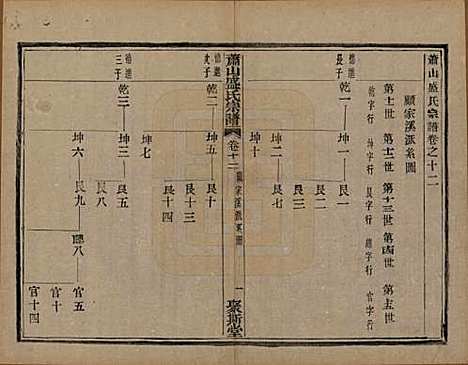 蕭山盛氏宗譜卷之十二
顧家溪派系圖
第十一世 第十二世 第十三世 第十四世 第十五世
乾字行 坤字行 艮字行 字行 官字行
長子
乾一 坤一 艮一
坤二 艮七
坤十
蕭山盛氏宗譜 卷十二 顧家溪派系圖 一 聚斯堂
次子
乾二 坤五 艮十
艮十三
艮十四
三子
乾三 坤三 艮五
艮八
坤六 艮九 八 官五
官十
官十四
坤七